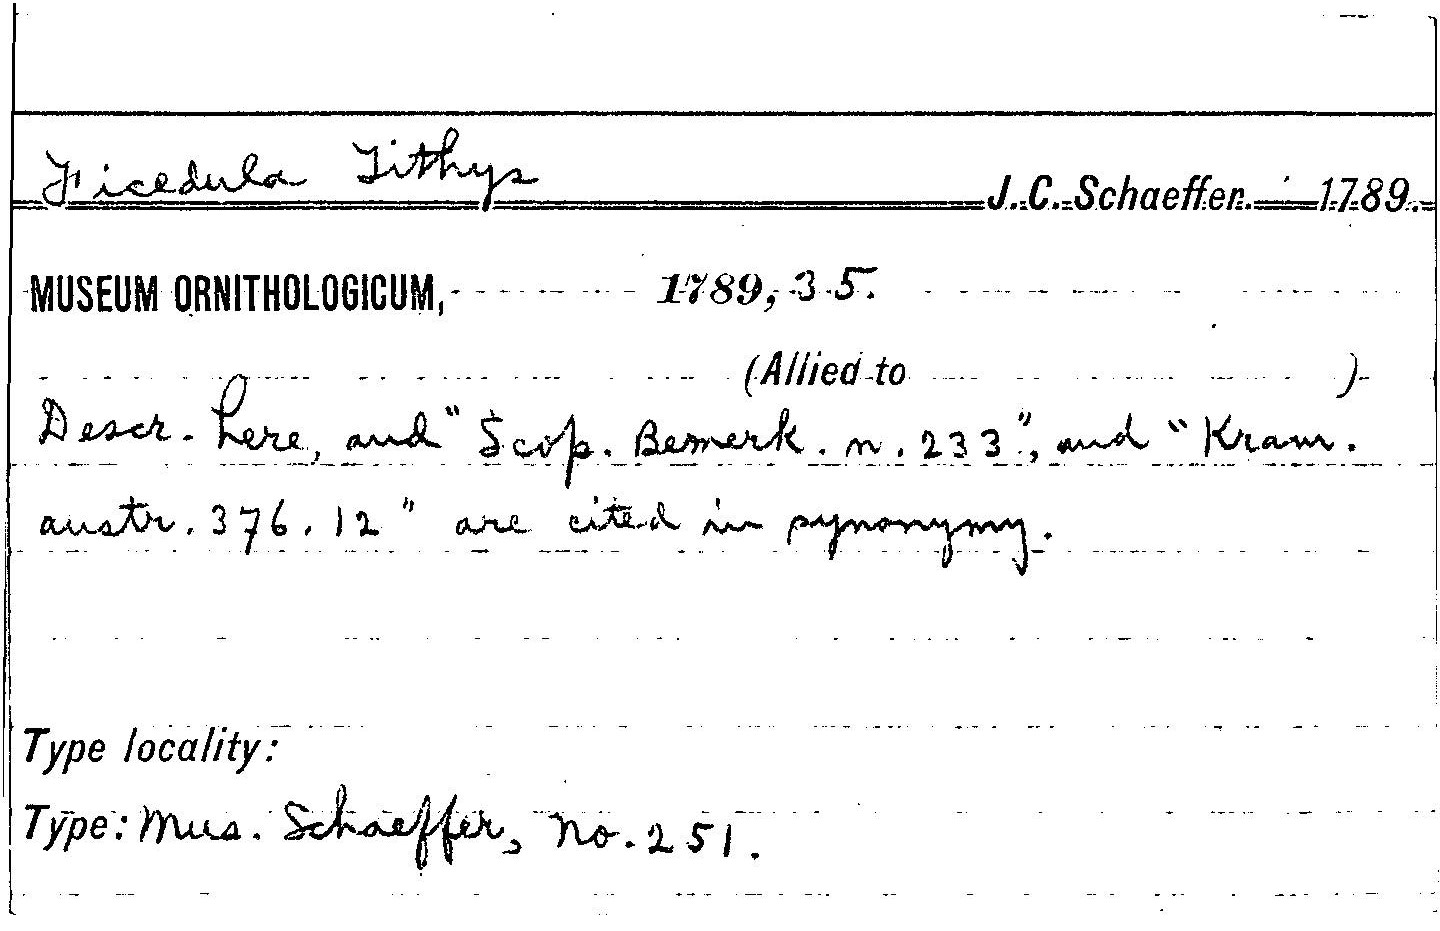 Ficedula Tithys
J. C. Schaeffer. 1789.
MUSEUM ORNITHOLOGICUM, 1789, 35.
(Allied to )
Descr. here, and "Scop. Bemerk. n. 233", and "Kram.
austr. 376. 12" are cited in synonymy.
Type locality:
Type: Mus. Schaeffer, no. 251.